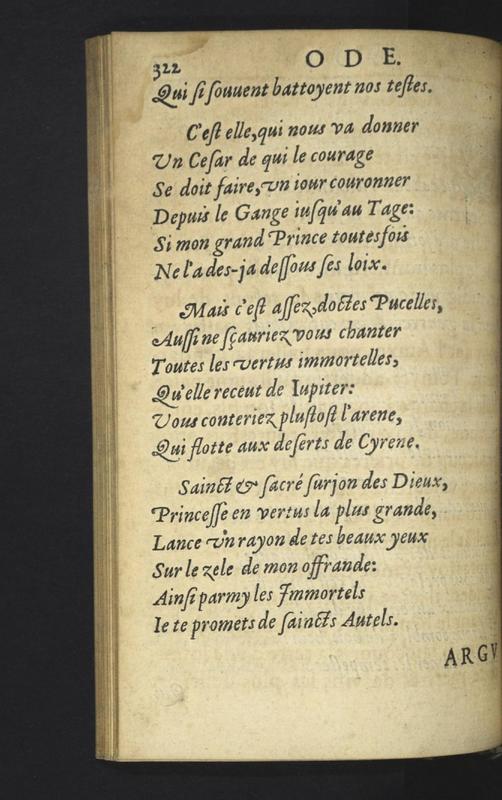 322 ODE.
Qui si souuent battoyent nos testes.
C'est elle, qui nous va donner
Vn Cesar de qui le courage
Se doit faire, vn iour couronner
Depuis le Gange iusqu'au Tage:
Si mon grand Prince toutesfois
Ne l'a des-ja dessous ses loix.
Mais c'est assez, doctes Pucelles,
Aussi ne sçauriez vous chanter
Toutes les vertus immortelles,
Qu'elle receut de Iupiter:
Vous conteriez plustost l'arene,
Qui flotte aux deserts de Cyrene.
Sainct & sacré surjon des Dieux,
Princesse en vertus la plus grande,
Lance vn rayon de tes beaux yeux
Sur le zele de mon offrande:
Ainsi parmy les Immortels
Ie te promets de saincts Autels.
ARGV